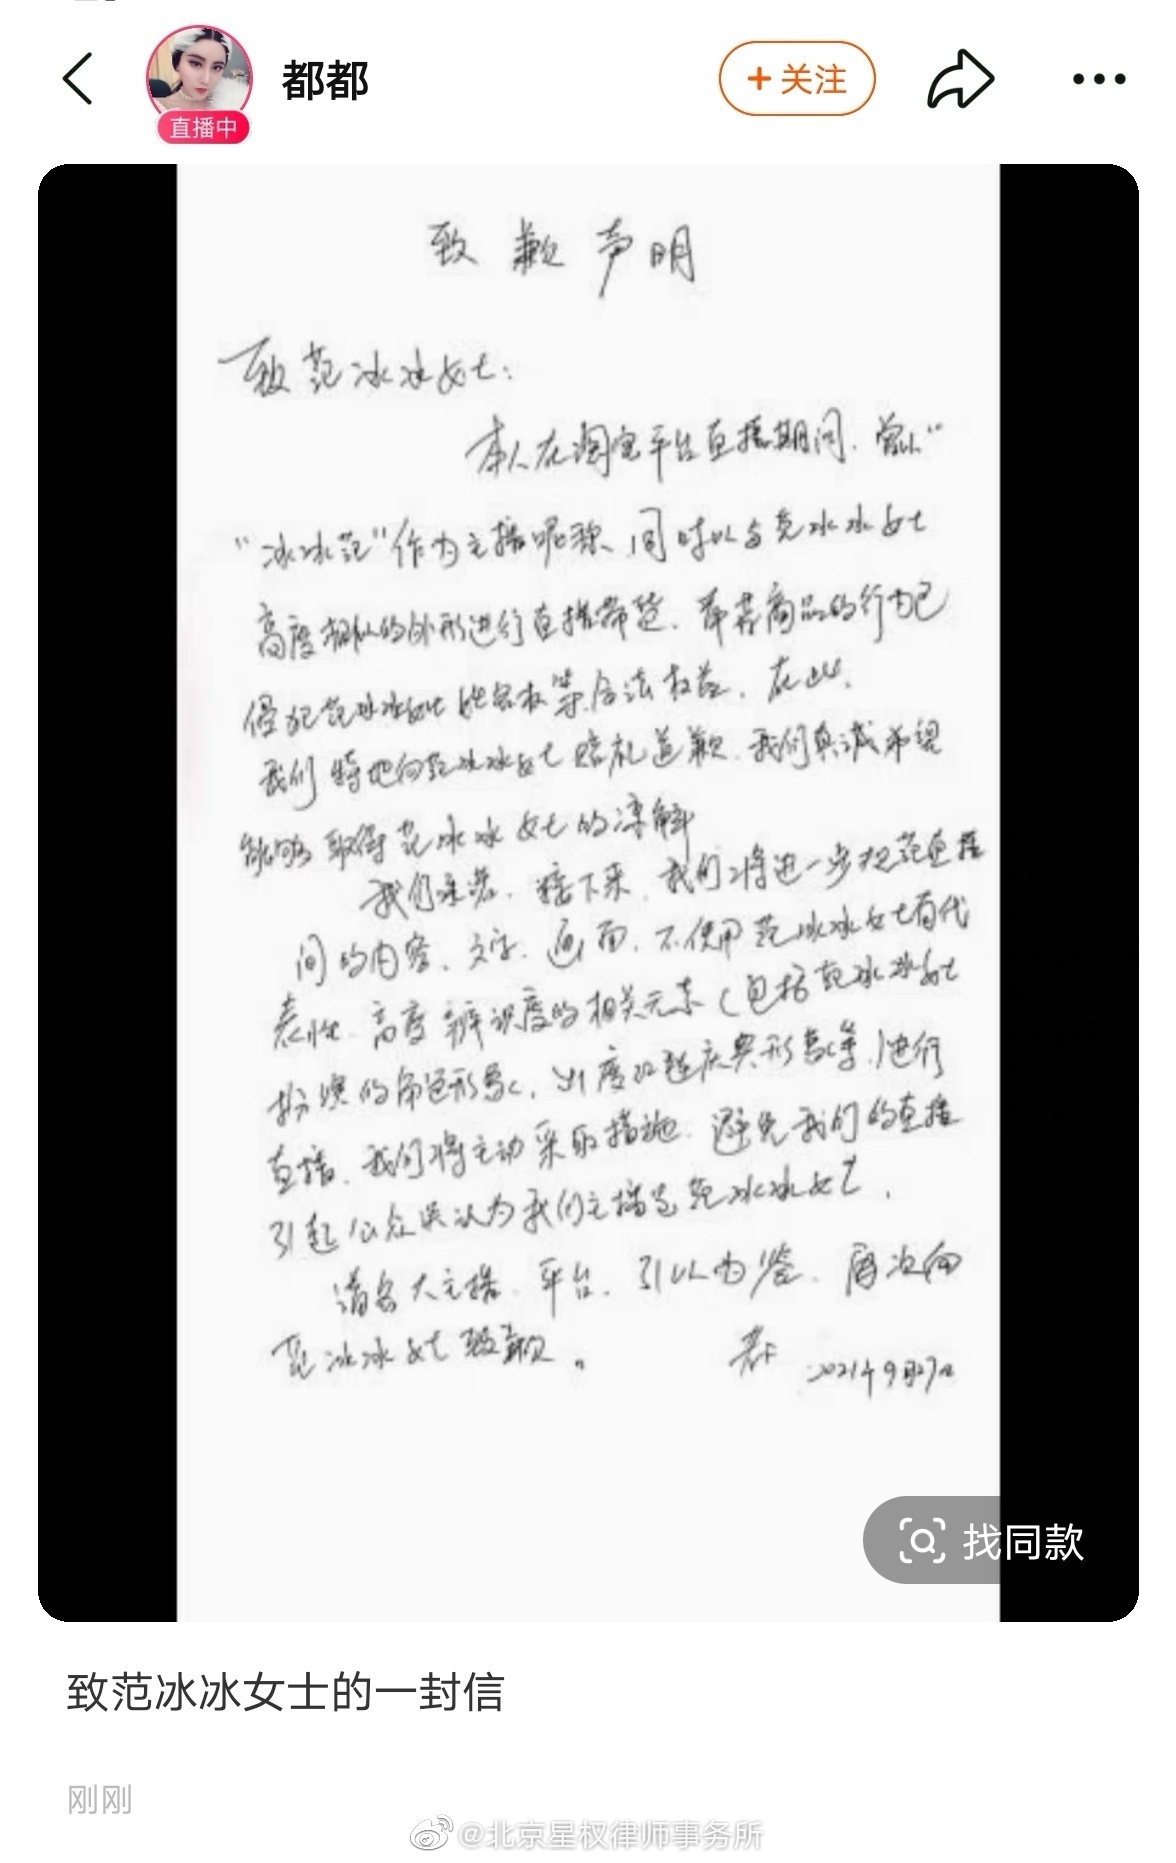 都都
+关注
直播中
致歉声明
致范冰冰女士：
本人在淘宝平台直播期间，曾以“
“冰冰范”作为主播昵称、同时以与范冰冰女士
高度相似的外形进行直播带货、推荐商品的行为已
侵犯范冰冰女士姓名权等合法权益，在此，
我们特地向范冰冰女士赔礼道歉，我们真诚希望
能够取得范冰冰女士的谅解
我们承诺，接下来，我们将进一步规范直播
间的内容、文字、画面，不使用范冰冰女士有代
表性、高度辨识度的相关元素（包括范冰冰女士
扮演的角色形象，出席红毯庆典形象等，进行
直播，我们将主动采取措施，避免我们的直播
引起公众误认为我们主播是范冰冰女士，
请各大主播、平台，引以为鉴，再次向
范冰冰女士致歉。
2021年9月27日
找同款
致范冰冰女士的一封信
刚刚
@北京星权律师事务所